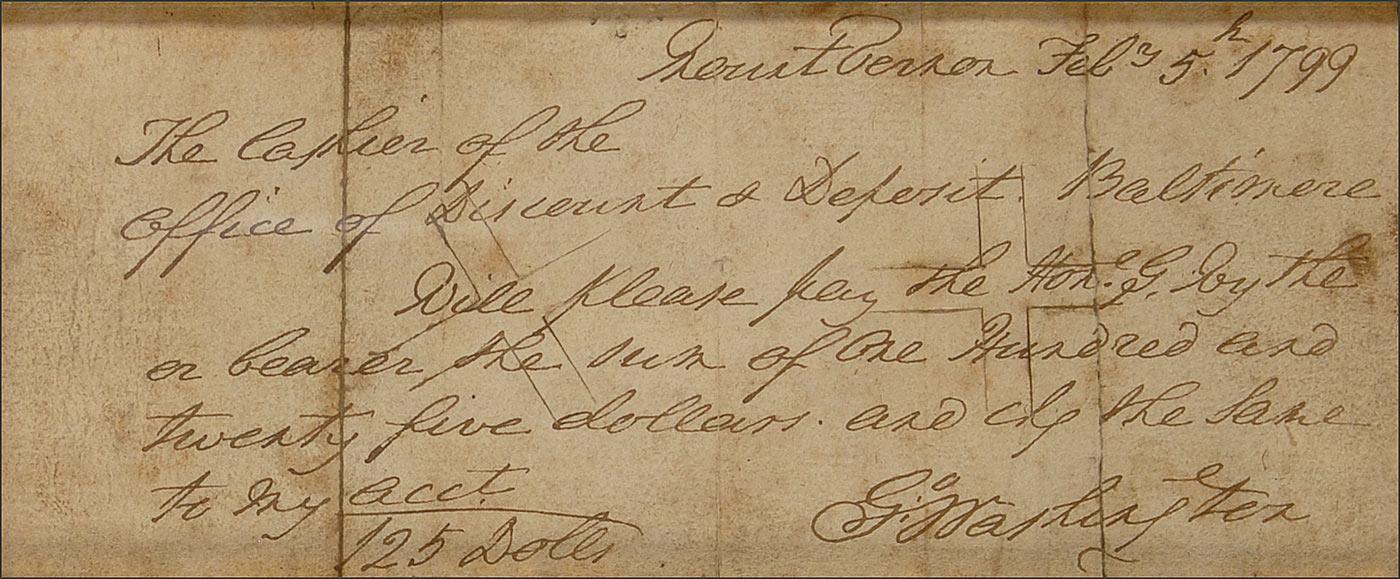 Mount Vernon Feby 5th. 1799
The Cashier of the
Office of Discount & Deposit. Baltimore
Will please pay the Hone. G. Wythe
or bearer the sum of One Hundred and
twenty five dollars. and chg the same
to my acct.
125 Dolls
Go. Washington